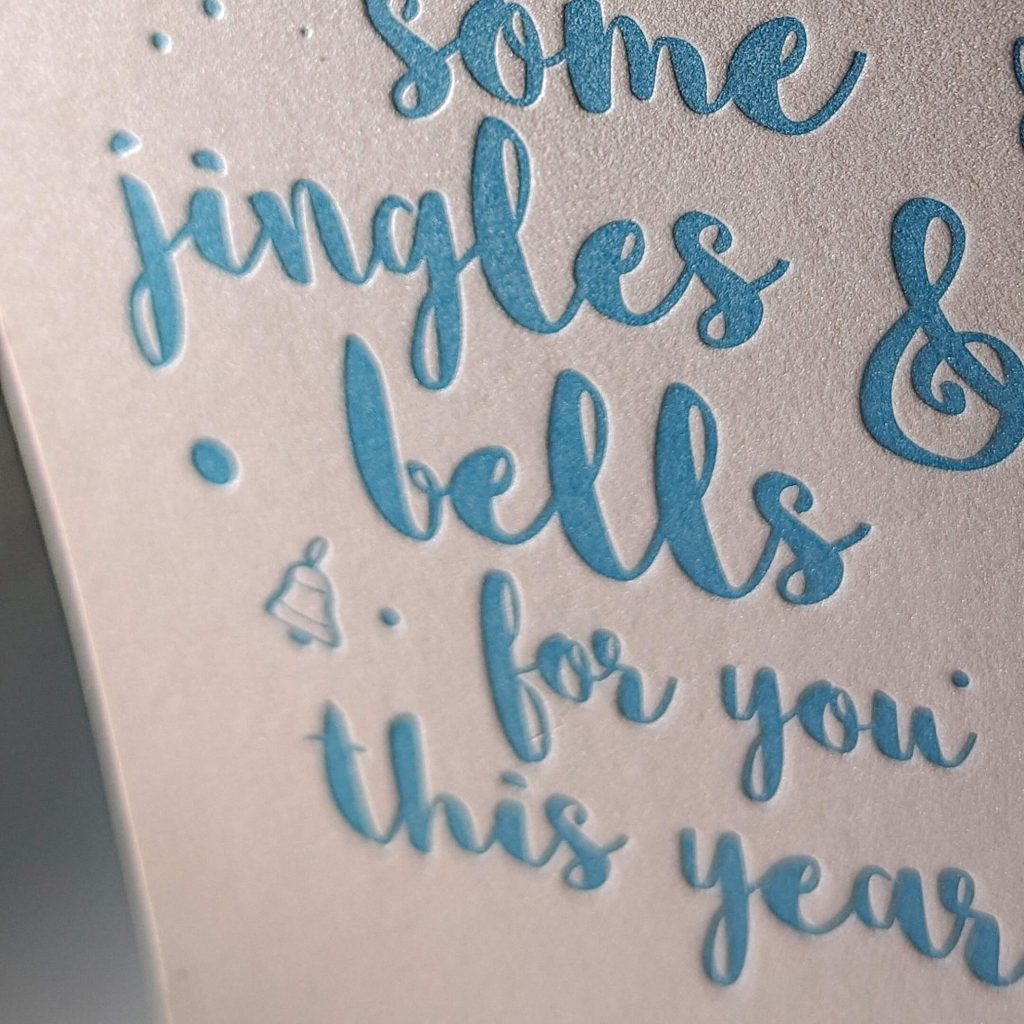 some
jingles &
bells
for you
this year